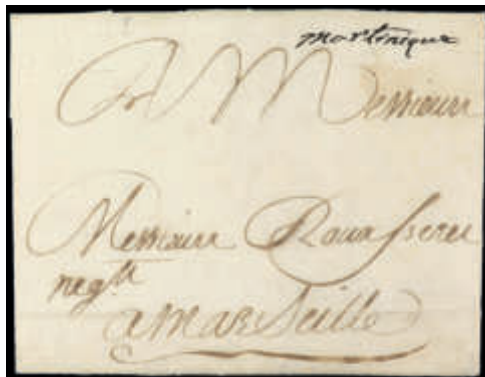 Martinique
A Messieurs
Messieurs Roux freres
negts
a Marseille